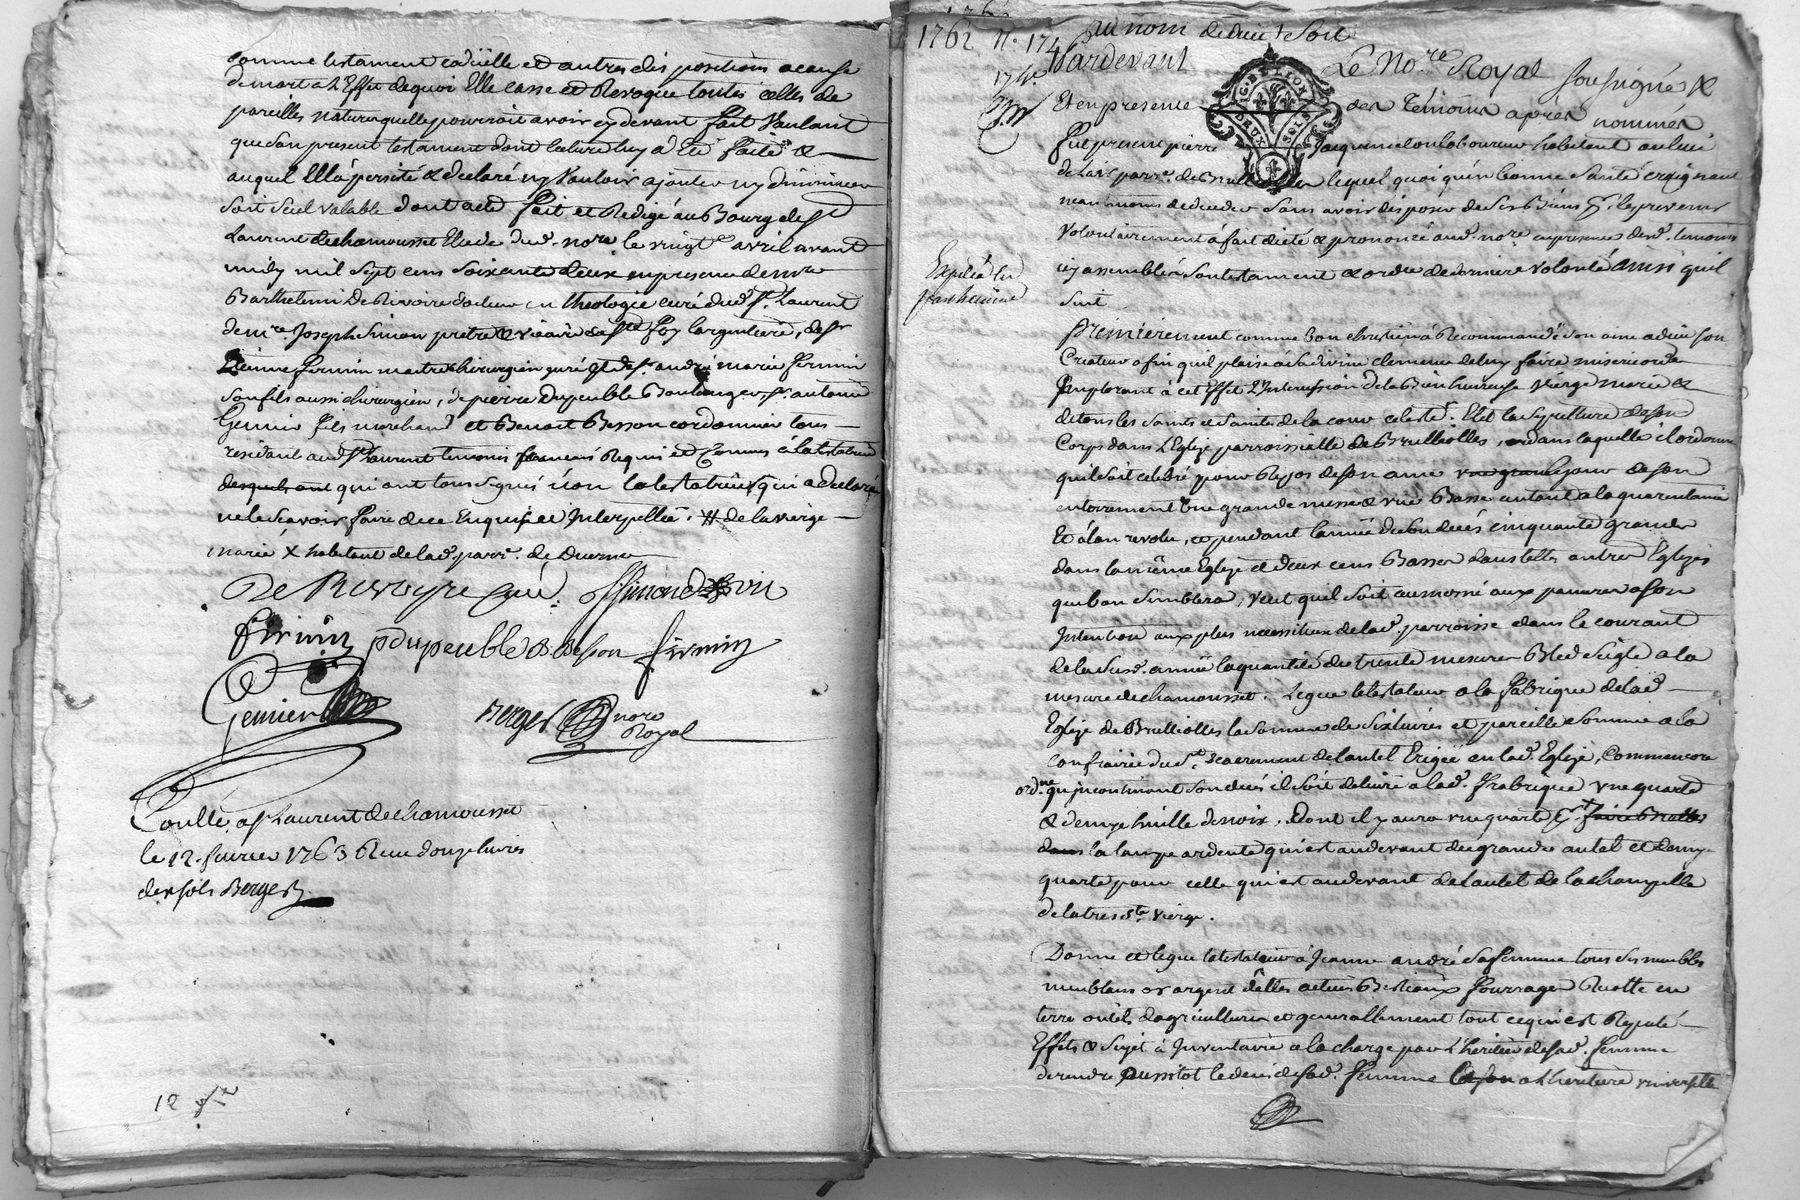 comme testament codicille et autres dispositions a cause
de mort a l'Effet dequoi Elle casse et Revoque toutes celles de
pareilles nature quelle pourroit avoir cy devant fait Vaulant
que son present testament dont lecture luy a Eté faitte &
auquel Ella persisté & declaré ny Vouloir ajouter ny diminuer
soit seul valable dont acte fait et Redigé au Bourg de St
Laurent de chamousset Etude dud. nore le vingt avril avant
midy mil sept cens soixante deux en presence de mre
Barthelemi De Rivoire docteur en theologie curé dud. St Laurent
de mre Joseph Simon pretre & vicaire de Ste foy l'argentiere, de sr
Etienne fermin maitre chirurgien juré et de sr andré marie fermin
son fils aussi chirurgien, de pierre dupeuble Boulanger, sr antoine
Genier fils marchand et Benoit Besson cordonnier tous
residant aud St Laurent temoins Requis et Connus a la testatrice
desquels ont qui ont tous signés non la testatrice qui a declaré
ne le scavoir faire de ce Enquise et Interpellée. # de la vierge
marie X habitant de lad. parr. de Duerne
De Rivoyre curé. Simond
firmin pdupeuble B Besson firmin
Genier
Berger nore
Royal
Conllé a St Laurent de chamousset
le 12. fevrier 1763 Receu douze livres
dix sols Berger
12
1762 N. 174
174e
au nom de dieu soit
Pardevant Le Nore Royal soussigné &
Et en presence des Témoins après nommés
fut present pierre Jacquemeton laboureur habitant au lieu
de parr. de Brull lequel quoi qu'en bonne santé craignant
neanmoins de deceder sans avoir disposer de ses Biens pr. les prevenir
Volontairement a fait dicté & prononcé aud. nore en presence desd. temoins
icy assemblés son testament & ordre de derniere volonté ainsi quil
suit
Expédié en
parchemin
Premierement comme bon chrestien a Recommandé son ame a dieu son
Createur afin quil plaise a sa divine clemence de luy faire misericorde
Implorant à cet Effet l'Intercession de la Bien heureuse vierge marie &
de tous les saints et saintes de la cour celeste. Elit la sepulture de son
Corps dans l'Eglize parroissialle de Brullioles, dans laquelle il ordonne
quil soit celebré pour Repos de son ame jour de son
enterrement une grande messe & une Basse autant a la quarantaine
Et a l'an revolu, et pendant l'année de son decés cinquante grandes
dans la même Eglize et deux cens Basses dans telles autres Eglizes
que bon semblera, veut quil soit aumoné aux pauvres a son
Intention aux plus necessiteux de lad. parroisse dans le courant
de la susd. année la quantité de trente mesures Bled seigle a la
mesure de chamousset. Legue le testateur a la fabrique de lad.
Eglize de Brullioles la somme de six livres et pareille somme a la
confrairie du St. Sacrement de l'autel Erigée en lad. Eglize, Comme encore
ordne. qu'jncontinent son decés il soit delivré a lad. frabrique une quarte
& demye huille de noix. Dont il y aura une quarte pr.
dans la lampe ardente qui est au devant du grand autel et demy
quarte pour celle qui est au devant de l'autel de la chappelle
de la tres ste. vierge.
Donne et legue le testateur à Jeanne andré sa femme tous ses meubles
meublans or argent dettes actives Bestiaux fourrages Recolte en
terre outils d'agriculture et generallement tout ce qui est Reputé
Effets & sujet à Inventaire a la charge par l'heritiere sad. femme
de rendre aussitot le decés de sad. femme a l'heritiere universelle